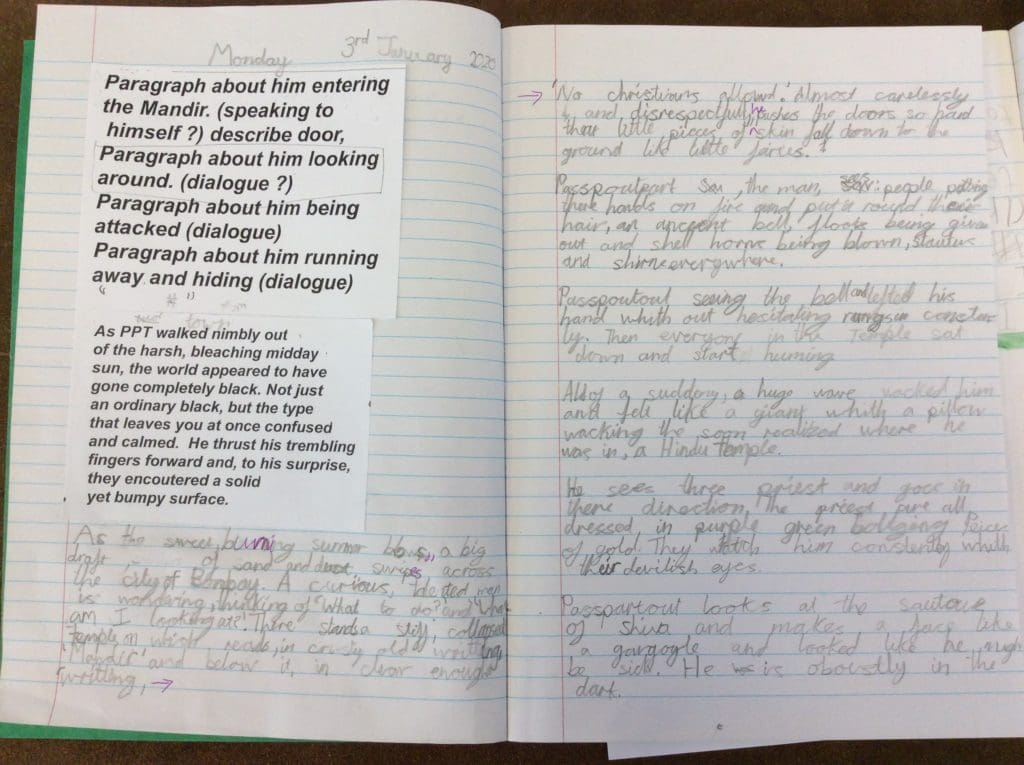 Monday 3rd January 2020
Paragraph about him entering
the Mandir. (speaking to
himself ?) describe door,
Paragraph about him looking
around. (dialogue ?)
Paragraph about him being
attacked (dialogue)
Paragraph about him running
away and hiding (dialogue)
town
As PPT walked nimbly out
of the harsh, bleaching midday
sun, the world appeared to have
gone completely black. Not just
an ordinary black, but the type
that leaves you at once confused
and calmed. He thrust his trembling
fingers forward and, to his surprise,
they encoutered a solid
yet bumpy surface.
As the sweet, burning summer blows, a big
draft of sand and dust, swipes across
the city of Bombay. A curious, man
is wondering, thinking of 'What to do?' and 'what
am I looking at?'. There stands a still, collapsed
temple, on wich reads, in crusty old writting,
'Mandir' and below it, in clear enough
writting, →
→ 'No christians allowd.' Almost carelessly
and disrespectfull, he pushes the doors so hard
that little pieces of skin fall down to the
ground like little fairies.
Passpoutpart the man, sees people putting
there hands on fire and put it round their
hair, an ancent bell, floots being given
out and shell horns being blown, stautus
and shirns everywhere.
Passpoutout seeing the bell and lefted his
hand whith out hesitating rungs consten
ly. Then everyone in the temple sat
down and start huming
All of a suddeny, a huge wave wacked him
and felt like a giant whith a pillow
wacking the soon realized where he
was in, a Hindu Temple.
He sees three priest and goes in
there direction, the priest are all
dressed in purple green peice
of gold. They watch him constently whith
their devilish eyes.
Passpartout looks at the sautoue
of Shiva and makes a face like
a gargoyle and looked like he migh
be sick. He is obovstly in the
dark.